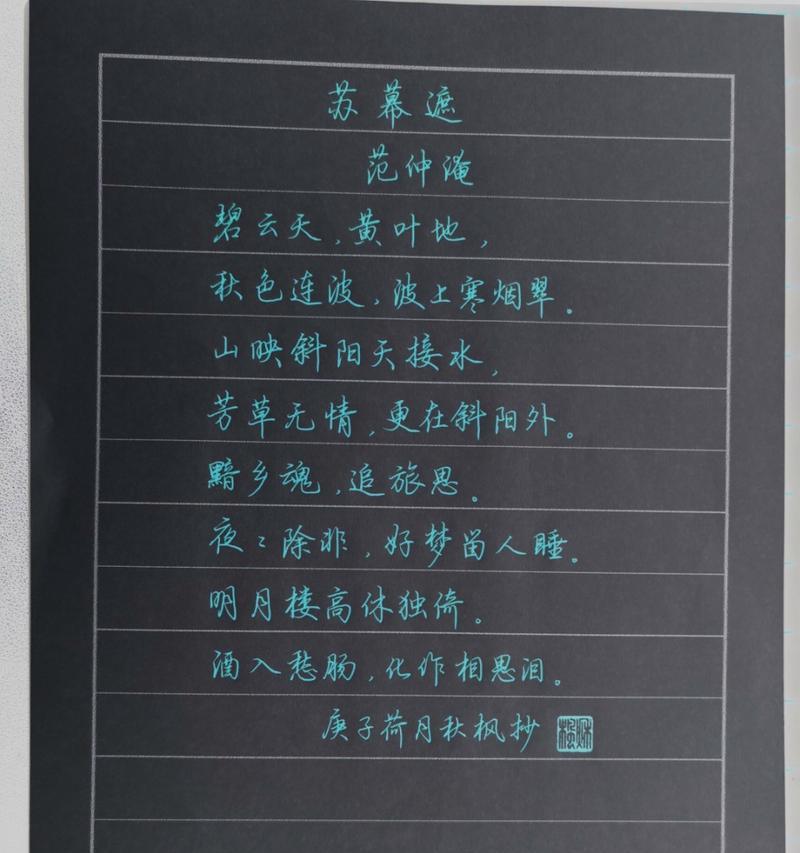 苏幕遮
范仲淹
碧云天，黄叶地，
秋色连波，波上寒烟翠。
山映斜阳天接水，
芳草无情，更在斜阳外。
黯乡魂，追旅思。
夜々除非，好梦留人睡。
明月楼高休独倚。
酒入愁肠，化作相思泪。
庚子荷月秋枫抄